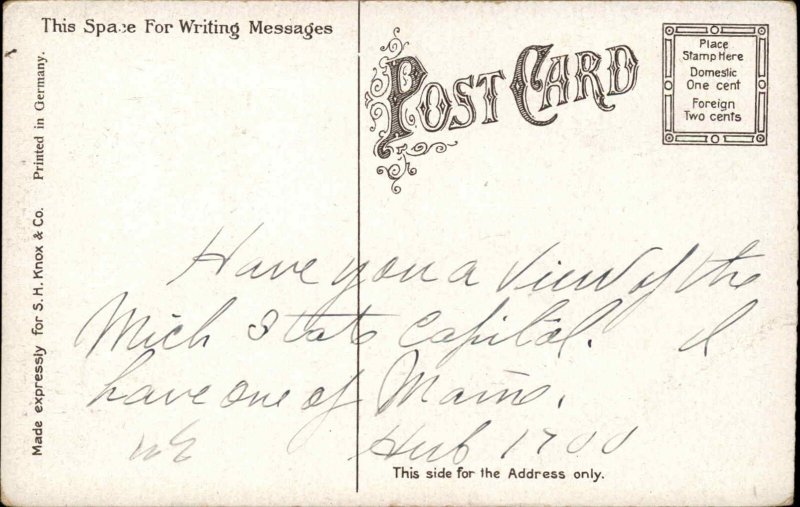 This Space For Writing Messages
POST CARD
Place
Stamp Here
Domestic
One cent
Foreign
Two cents
Printed in Germany.
Made expressly for S. H. Knox & Co.
Have you a View of the
Mich State Capitol. I
have one of Maine.
Hub 1700
This side for the Address only.